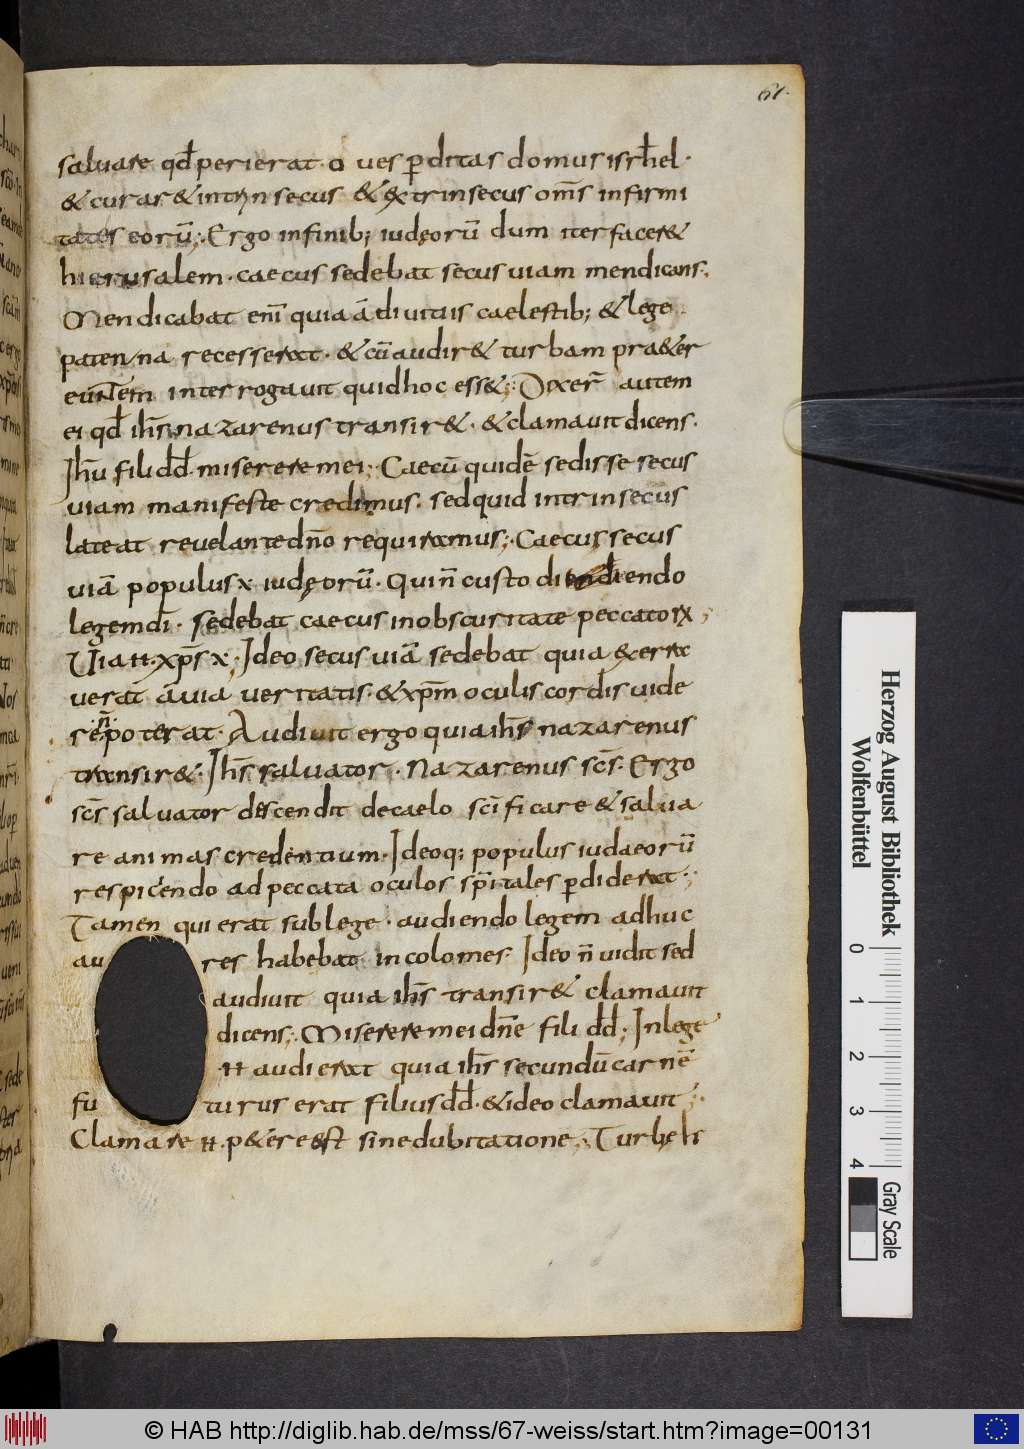 61.
saluare qd̄ perierat. o ues p̄ditas domus isrl̄.
& curar& intrinsecus & extrinsecus om̄s infirmi
tates eorū; Ergo in finib; iudęorū dum iter facer&
hierusalem. caecus sedebat secus uiam mendicans.
Mendicabat enī quia ā diuitiis caelestib; & lege
paterna recesserat. & cū audir& turbam pra&er
euntem interrogauit quid hoc ess&. Dixer̄ autem
ei qd̄ ih̄s nazarenus transir&. & clamauit dicens.
Ih̄u fili dd̄. miserere mei; Caecū quidē sedisse secus
uiam manifeste credimus. sed quid intrinsecus
lateat reuelante dn̄o requiramus; Caecus secus
uiā populus x iudęorū. Qui n̄ custodiendo
legem dī. sedebat caecus in obscuritate peccatorx;
Uia .xp̄s x; Ideo secus uiā sedebat quia exerra
uerat ā uia ueritatis. & xp̄m oculis cordis uide
re .n̄. poterat. Audiuit ergo quia ih̄s nazarenus
transir&. Ih̄s saluator. Nazarenus sc̄s. Ergo
sc̄s saluator descendit de caelo sc̄ificare & salua
re animas credentium. Ideoq; populus iudaeorū
respiciendo ad peccata oculos sp̄itales p̄diderat;
Tamen qui erat sub lege. audiendo legem adhuc
au res habebat incolomes. Ideo n̄ uidit sed
audiuit quia ih̄s transir& clamauit
dicens; Miserere mei dn̄e fili dd̄; In lege
audierat quia ih̄s secundū carnē
fu turus erat filius dd̄. & ideo clamauit;
Clamare .p&ere est sine dubitatione; Turbęli
Herzog August Bibliothek
Wolfenbüttel
0 1 2 3 4
Gray Scale
© HAB http://diglib.hab.de/mss/67-weiss/start.htm?image=00131